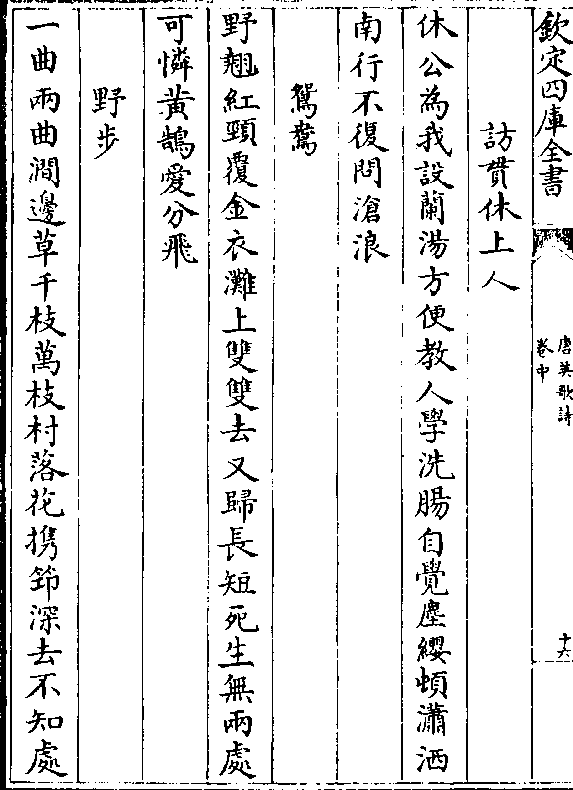 欽定四庫全書
唐英歌詩
卷中
十六
訪貫休上人
休公為我設蘭湯方便教人學洗腸自覺塵纓頓瀟洒
南行不復問滄浪
鴛鴦
野翹紅頸覆金衣灘上雙雙去又歸長短死生無兩處
可憐黃鵠愛分飛
野步
一曲兩曲澗邊草千枝萬枝村落花携筇深去不知處